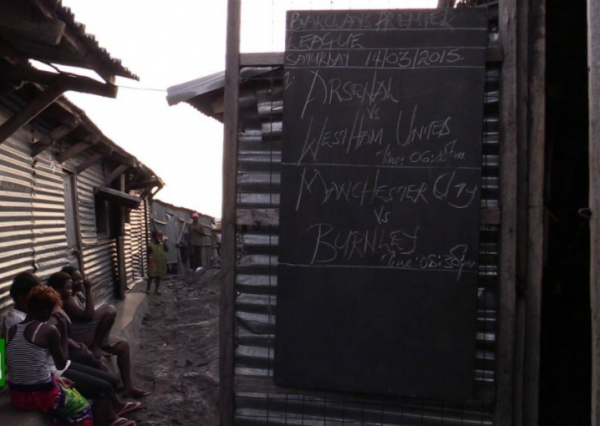 BARCLAYS PREMIER
LEAGUE
SATURDAY 14/03/2015.
ARSENAL
VS
WESTHAM UNITED
MANCHESTER City
VS
BURNLEY
Time: 08:30pm